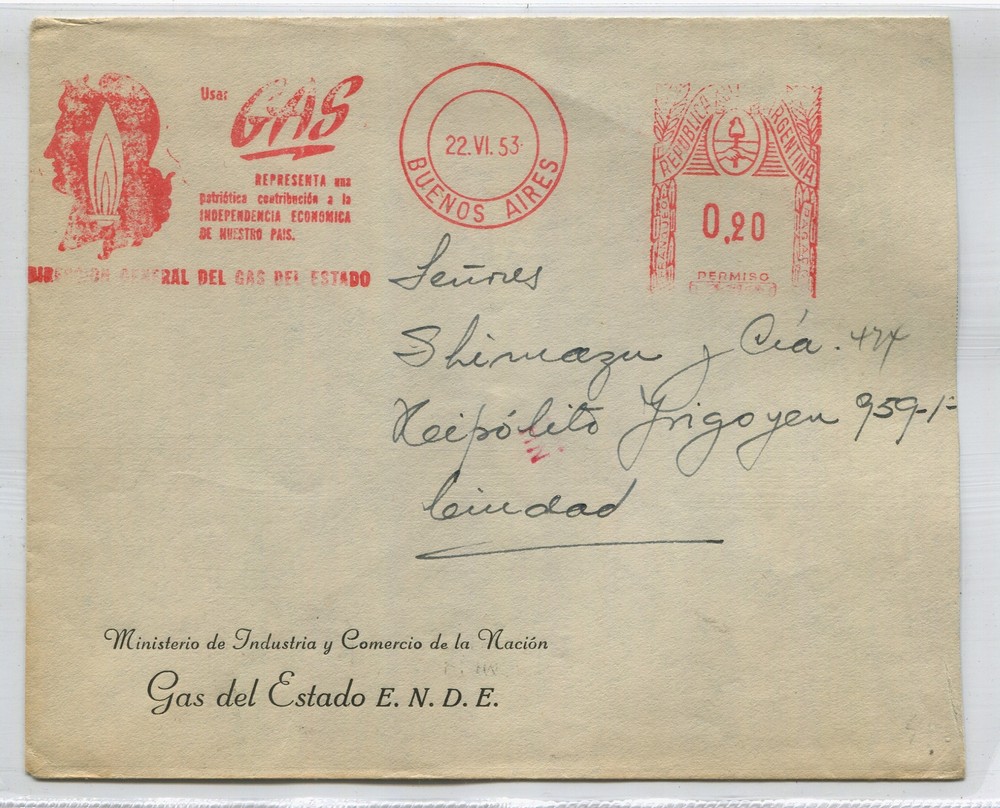 Usar GAS
REPRESENTA una
patriótica contribución a la
INDEPENDENCIA ECONOMICA
DE NUESTRO PAIS.
DIRECCION GENERAL DEL GAS DEL ESTADO
22.VI.53
BUENOS AIRES
REPUBLICA ARGENTINA
FRANQUEO PAGADO
0,20
PERMISO
Señores
Shimazu y Cía.
Heipólito Yrigoyen 959-1º
Ciudad
Ministerio de Industria y Comercio de la Nación
Gas del Estado E. N. D. E.